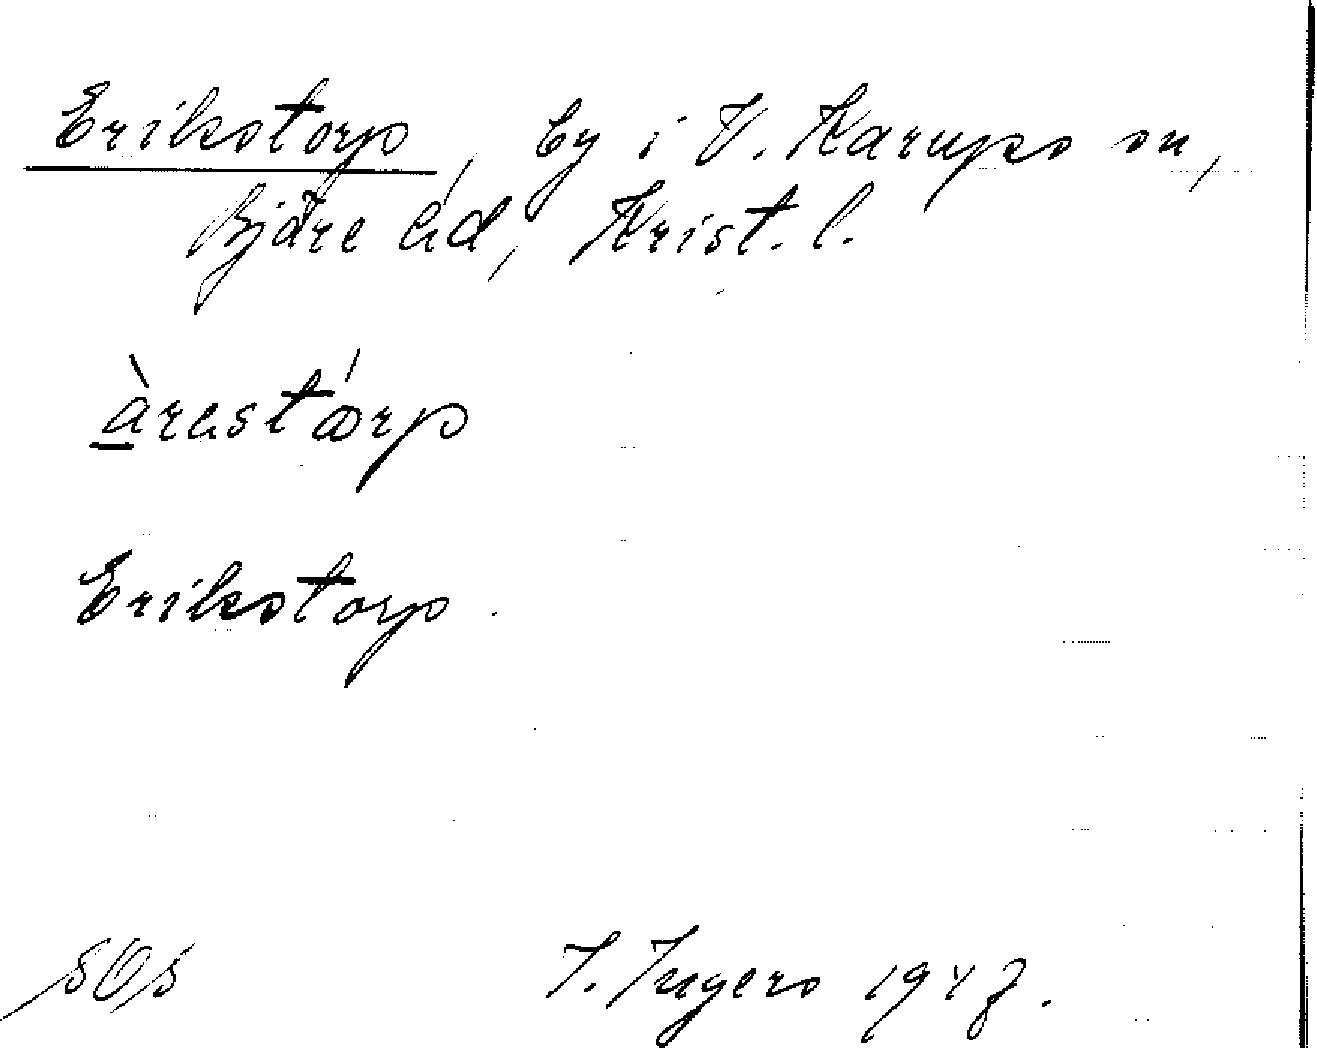 Erikstorp, by i V. Karups sn,
Bjäre hd, Krist. l.
àrestárp
Erikstorp.
I. Ingers 1947.